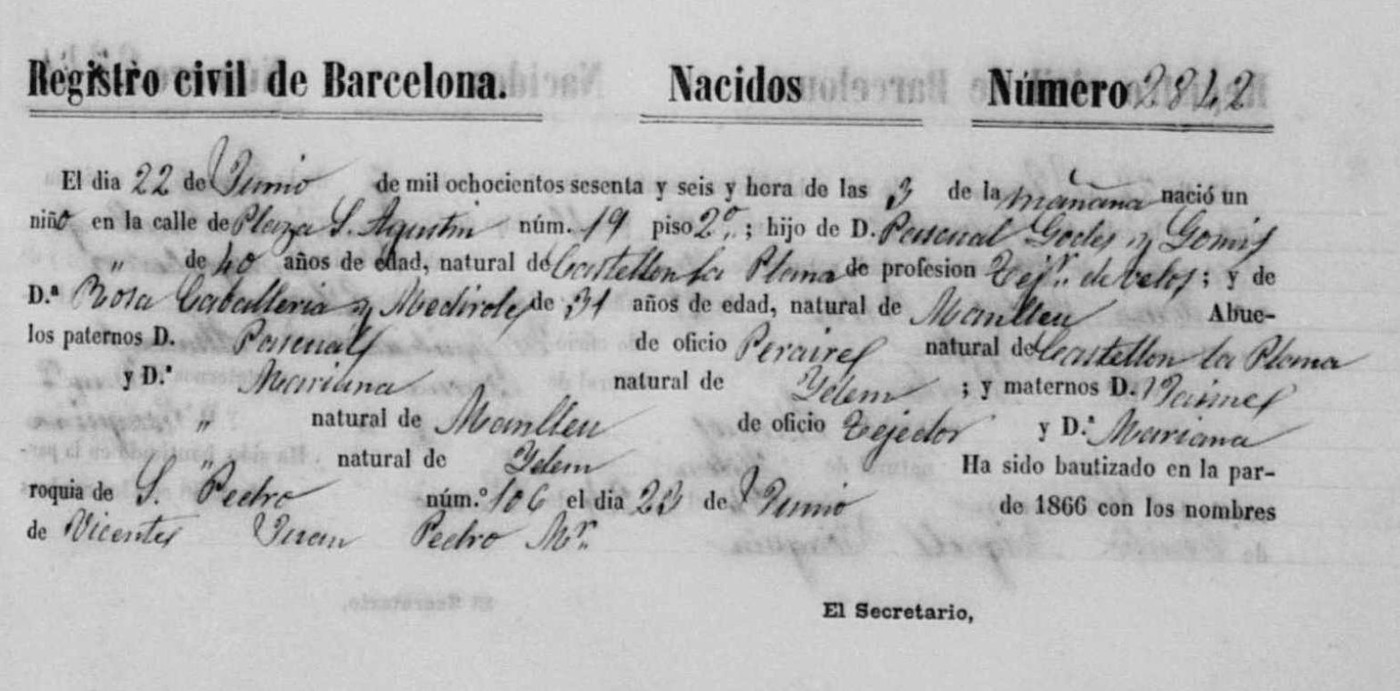 Registro civil de Barcelona. Nacidos Número 2842
El dia 22 de Junio de mil ochocientos sesenta y seis y hora de las 3 de la mañana nació un
niño en la calle de Plaza S. Agustin núm. 19 piso 2º; hijo de D. Pascual Godes y Gomis
" de 40 años de edad, natural de Castellon la Plana de profesion Tejr. de velos; y de
D.ª Rosa Caballeria y Medirole de 31 años de edad, natural de Manlleu Abue-
los paternos D. Pascual de oficio Peraire natural de Castellon la Plana
y D.ª Mariana natural de Ydem; y maternos D. Jaime
" natural de Manlleu de oficio Tejedor y D.ª Mariana
" natural de Ydem Ha sido bautizado en la par-
roquia de S. Pedro núm.º 106 el dia 23 de Junio de 1866 con los nombres
de Vicente Juan Pedro Mr.
El Secretario,